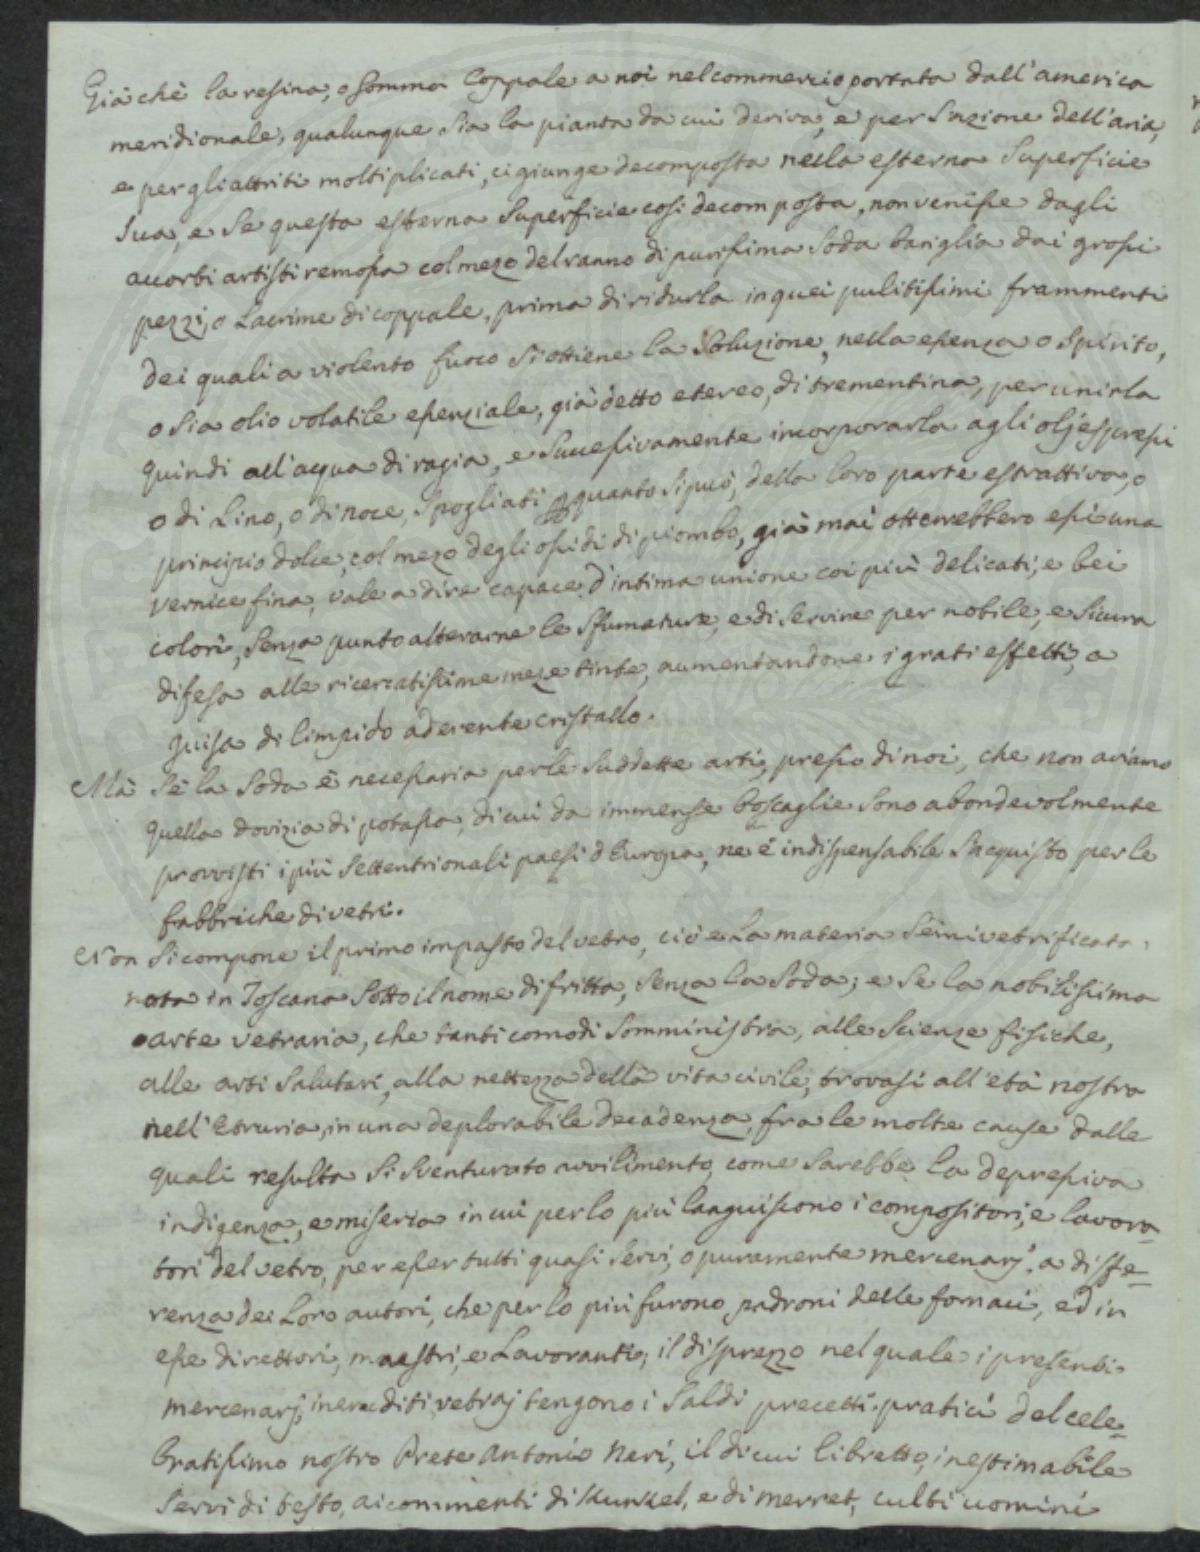 Già chè la resina, o Gomma Coppale a noi nel commercio portata dall'america
meridionale, qualunque sia la pianta da cui deriva, e per l'azione dell'aria,
e per gli attriti moltiplicati, ci giunge decomposta nella esterna Superficie
Sua, e Se questa esterna Superficie così decomposta, non venisse dagli
accorti artisti remossa col mezo del ranno di purissima Soda bariglia dai grossi
pezzi, o Lacrime di coppale, prima di ridurla in quei pulitissimi frammenti
dei quali a violento fuoco Si ottiene la Soluzione, nella essenza o Spirito,
o Sia olio volatile essenziale, già detto etereo, di trementina, per unirla
quindi all'acqua di ragia, e Successivamente incorporarla agli olj espressi
o di Lino, o di noce, Spogliati quanto Si può, della loro parte estrattiva, o
principio dolce, col mezo degli ossidi di piombo, già mai otterrebbero essi una
vernice fina, vale a dire capace d'intima unione coi più delicati, e bei
colori, Senza punto alterarne le Sfumature, e di Servire per nobile, e Sicura
difesa alle ricercatissime meze tinte, aumentandone i grati effetti, a
guisa di limpido aderente cristallo.
Mà Sè la Soda è necessaria per le Suddette arti, presso di noi, che non aviamo
quella dovizia di potassa, di cui da immense boscaglie Sono abondevolmente
provvisti i più Settentrionali paesi d'Europa, ne è indispensabile l'acquisto per le
fabbriche di vetri.
Non Si compone il primo impasto del vetro, ciò è La materia Semivetrificata
nota in Toscana Sotto il nome di fritta, Senza la Soda; e Se la nobilissima
arte vetraria, che tanti comodi Somministra, alle Scienze fisiche,
alle arti Salutari, alla nettezza della vita civile, trovasi all'età nostra
nell'Etruria, in una deplorabile decadenza, fra le molte cause dalle
quali resulta Si Sventurato avvilimento, come Sarebbe la depressiva
indigenza, e miseria in cui per lo più languiscono i compositori, e lavora-
tori del vetro, per esser tutti quasi Servi, o puramente mercenarj, a diffe-
renza dei Loro autori, che per lo più furono padroni delle fornaci, ed in
esse direttori, maestri, e Lavoranti; il disprezzo nel quale i presenti
mercenarj, ineruditi vetraj tengono i Saldi precetti pratici del cele-
bratissimo nostro Prete Antonio Neri, il di cui libretto, inestimabile
Servì di testo, ai commenti di Kunkel, e di Merret, culti uomini